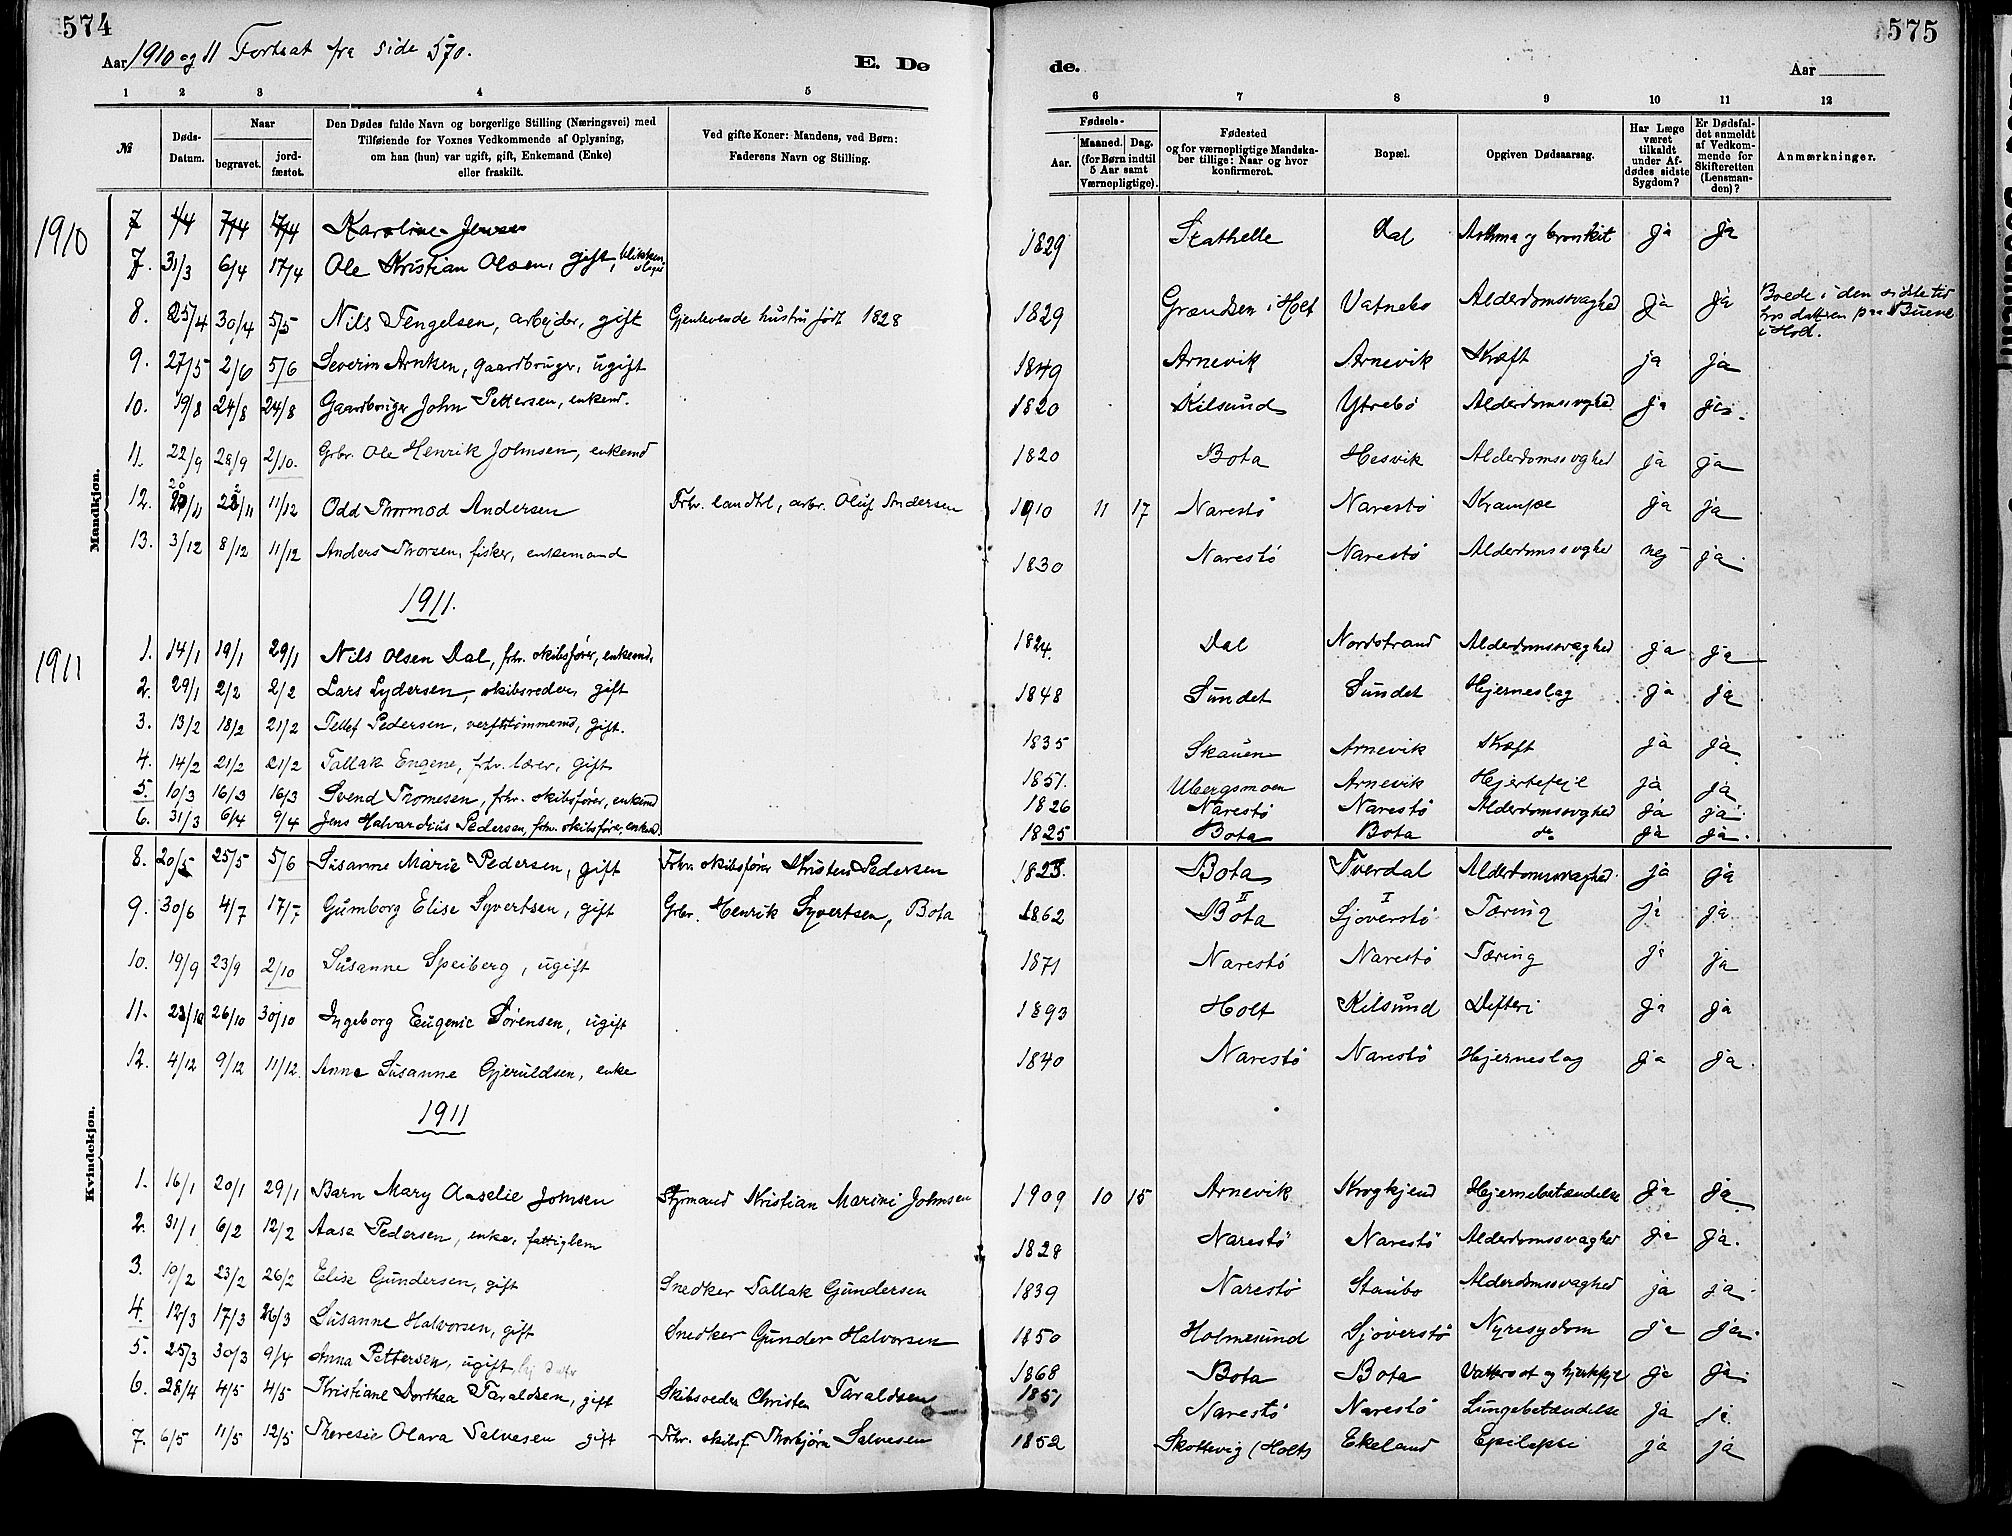 574
Aar 1910 og 11 Fortsat fra side 570.
E. Dø
de.
575
Aar
1 2 3 4 5 6 7 8 9 10 11 12
№
Døds-Datum.
Naar
begravet.
jord-fæstet.
Den Dødes fulde Navn og borgerlige Stilling (Næringsvei) med
Tilføiende for Voxnes Vedkommende af Oplysning,
om han (hun) var ugift, gift, Enkemand (Enke)
eller fraskilt.
Ved gifte Koner: Mandens, ved Børn:
Faderens Navn og Stilling.
Fødsels-
Aar.
Maaned. Dag.
(for Børn indtil
5 Aar samt
Værnepligtige).
Fødested
og for værnepligtige Mandska-
ber tillige: Naar og hvor
konfirmeret.
Bopæl.
Opgiven Dødsaarsag.
Har Læge
været
tilkaldt
under Af-
dødes sidste
Sygdom?
Er Dødsfal-
det anmeldt
af Vedkom-
mende for
Skifteretten
(Lensman-
den)?
Anmærkninger.
Mandkjøn.
1910
7 1/4 7/4 17/4 Karoline Jensen
7. 31/3 6/4 17/4 Ole Kristian Olsen, gift, 1829 Stathelle Dal Asthma og bronkit ja ja
8. 25/4 30/4 5/5 Nils Tengelsen, arbejder, gift Gjenlevende hustru født 1828 1829 Grændsen i Holt Vatnebo Alderdomssvaghed ja ja Boede i den sidste tid
hos datteren paa Buene
i Holt.
9. 27/5 2/6 5/6 Severin Arntsen, gaardbruger, ugift 1849 Arnevik Arnevik Kræft ja ja
10. 19/8 24/8 24/8 Gaardbruger John Pettersen, enkemd. 1820 Kilsund Ytrebø Alderdomssvghed ja ja.
11. 22/9 28/9 2/10. Grbr. Ole Henrik Johnsen, enkemd 1820 Bota Hesvik Alderdomssvghed ja ja
12. 20/11 22/11 11/12 Odd Thormod Andersen Frhv. landhl, arbr. Oluf Andersen 1910 11 17 Narestö Narestö Krampe ja ja
13. 3/12 8/12 11/12 Anders Thorsen, fisker, enkemand 1830 Narestö Narestö Alderdomssvghed nej ja.
1911.
1911
1. 14/1 19/1 29/1 Nils Olsen Dal, frhv. skibsfører, enkemd. 1824. Dal Nordstrand Alderdomssvaghed ja ja
2. 29/1 2/2 2/2 Lars Lydersen, skibsreder, gift 1848 Sundet Sundet Hjerneslag ja ja
3. 13/2 18/2 21/2 Tellef Pedersen, verfttömmermd, gift. 1835 Skauen Arnevik Kræft ja ja
4. 14/2 21/2 21/2 Tallak Engene, frhv. lærer, gift 1851. Ubergsmoen Arnevik Hjertefejl ja ja
5. 10/3 16/3 16/3 Svend Thomesen, frhv. skibsfører, enkemd 1826 Narestö Narestö Alderdomssvghed ja ja
6. 31/3 6/4 9/4 Jens Halvardius Pedersen, frhv. skibsfører, enkemd. 1825 Bota Bota do ja ja.
Kvindekjøn.
8. 20/5 25/5 5/6 Susanne Marie Pedersen, gift Frhv. skibsfører Kristen Pedersen 1823. Bota Tverdal Alderdomssvaghed. ja ja
9. 30/6 4/7 17/7 Gumborg Elise Syvertsen, gift Grbr. Henrik Syvertsen, Bota 1862 II Bota I Sjøverstö Tæring ja ja
10. 19/9 23/9 2/10 Susanne Speiberg, ugift 1871 Narestö Narestö Tæring ja ja
11. 23/10 26/10 30/10 Ingeborg Eugenie Sørensen, ugift 1893 Holt Kilsund Difteri ja ja
12. 4/12 9/12 11/12. Anne Susanne Gjeruldsen, enke 1840 Narestö Narestö Hjerneslag ja ja.
1911
1. 16/1 20/1 29/1 Barn Mary Aaselie Johnsen Styrmand Kristian Marini Johnsen 1909 10 15 Arnevik Krogkjend Hjernebetændelse ja ja
2. 31/1 6/2 12/2 Aase Pedersen, enke, fattiglem 1828 Narestö Narestö Alderdomssvaghed ja ja.
3. 19/2 23/2 26/2 Elise Gundersen, gift Snedker Tallak Gundersen 1839 Narestö Staubø Alderdomssvaghed ja ja.
4. 12/3 17/3 26/3 Susanne Halvorsen, gift Snedker Gunder Halvorsen 1850 Holmesund Sjøverstö Nyresygdom ja ja.
5. 25/3 30/3 9/4 Anna Pettersen, ugift, 1868 Bota Bota Vattersot og hjertefejl ja ja.
6. 28/4 4/5 4/5 Kristiane Dorthea Taraldsen, gift Skibsreder Christen Taraldsen 1851 Narestö Narestö Lungebetændelse ja ja
7. 6/5 11/5 12/5 Theresie Olava Salvesen gift Frhv. skibsf. Thorbjørn Salvesen 1852 Skottevig (Holt) Ekeland Epilepsi ja ja